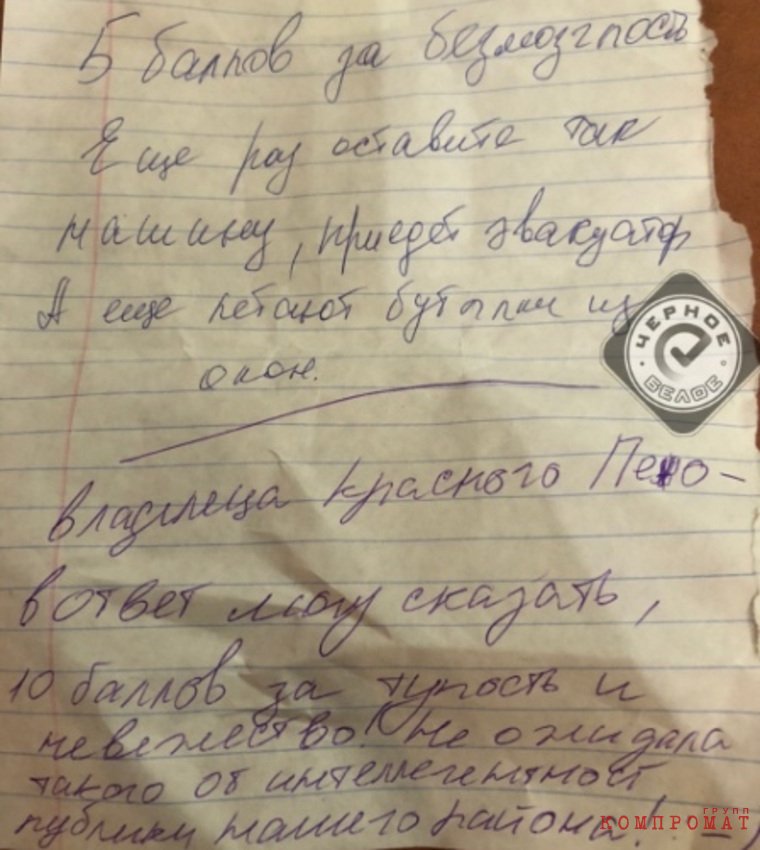 5 баллов за безмозглость.
Еще раз оставите так
машину, приедет эвакуатор
А еще летают бутылки из
окон.
ЧЕРНОЕ
БЕЛОЕ
владелеца красного Пежо -
в ответ могу сказать,
10 баллов за тупость и
невежество! Не ожидала
такого от интеллегентност
публики нашего района! - )
ГРУПП
КОМПРОМАТ